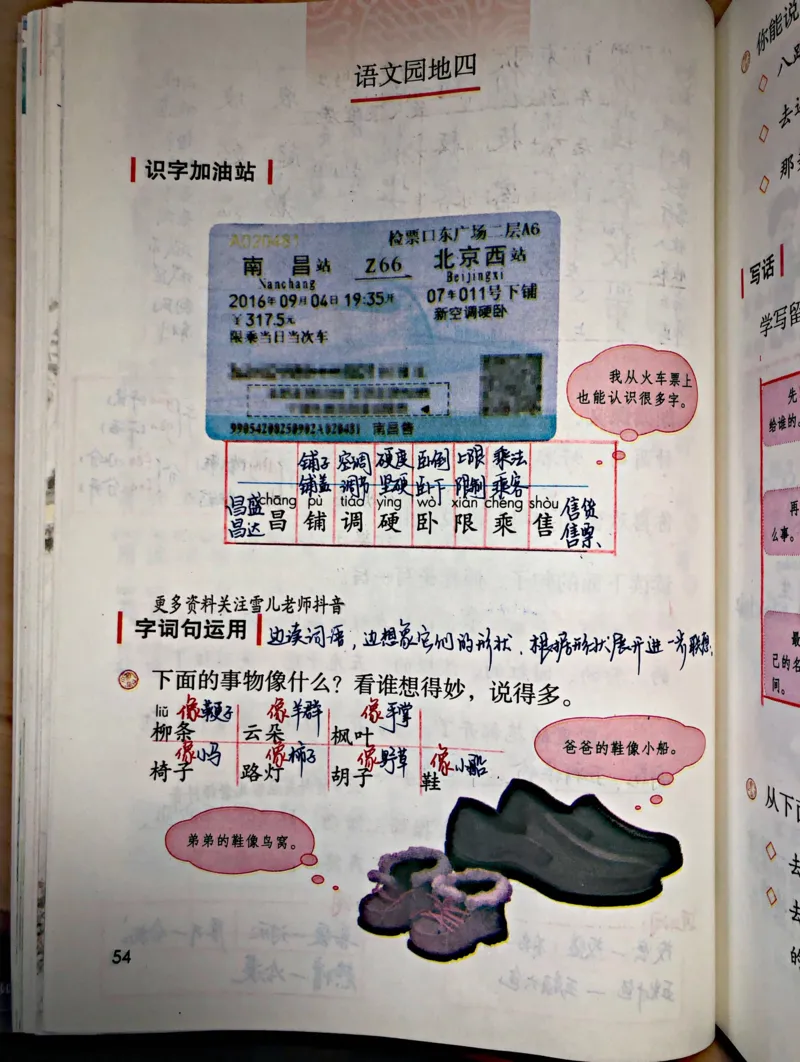 语文园地四
识字加油站
A020481 检票口东广场二层A6
南昌站 Z66 北京西站
Nanchang Beijingxi
2016年09月04日 19:35开 07车011号下铺
¥317.5元 新空调硬卧
限乘当日当次车
99054200250902A020481 南昌售
我从火车票上
也能认识很多字。
铺子 空调 硬度 卧倒 上限 乘法
铺盖 调节 坚硬 卧下 限制 乘客
昌盛 chāng pù tiáo yìng wò xiàn chéng shòu 售货
昌达 昌 铺 调 硬 卧 限 乘 售 售票
更多资料关注雪儿老师抖音
字词句运用 边读词语,边想象它们的形状,根据形状展开进一步联想.
下面的事物像什么?看谁想得妙,说得多。
liǔ 像鞭子 像羊群 像手掌
柳条 云朵 枫叶
像小马 像柿子 像野草 像小船
椅子 路灯 胡子 鞋
爸爸的鞋像小船。
弟弟的鞋像鸟窝。
54
你能说
八路
去
那
写话
学写留
先
给谁的
再
么事。
最
己的名
间。
从下面
去
去
的